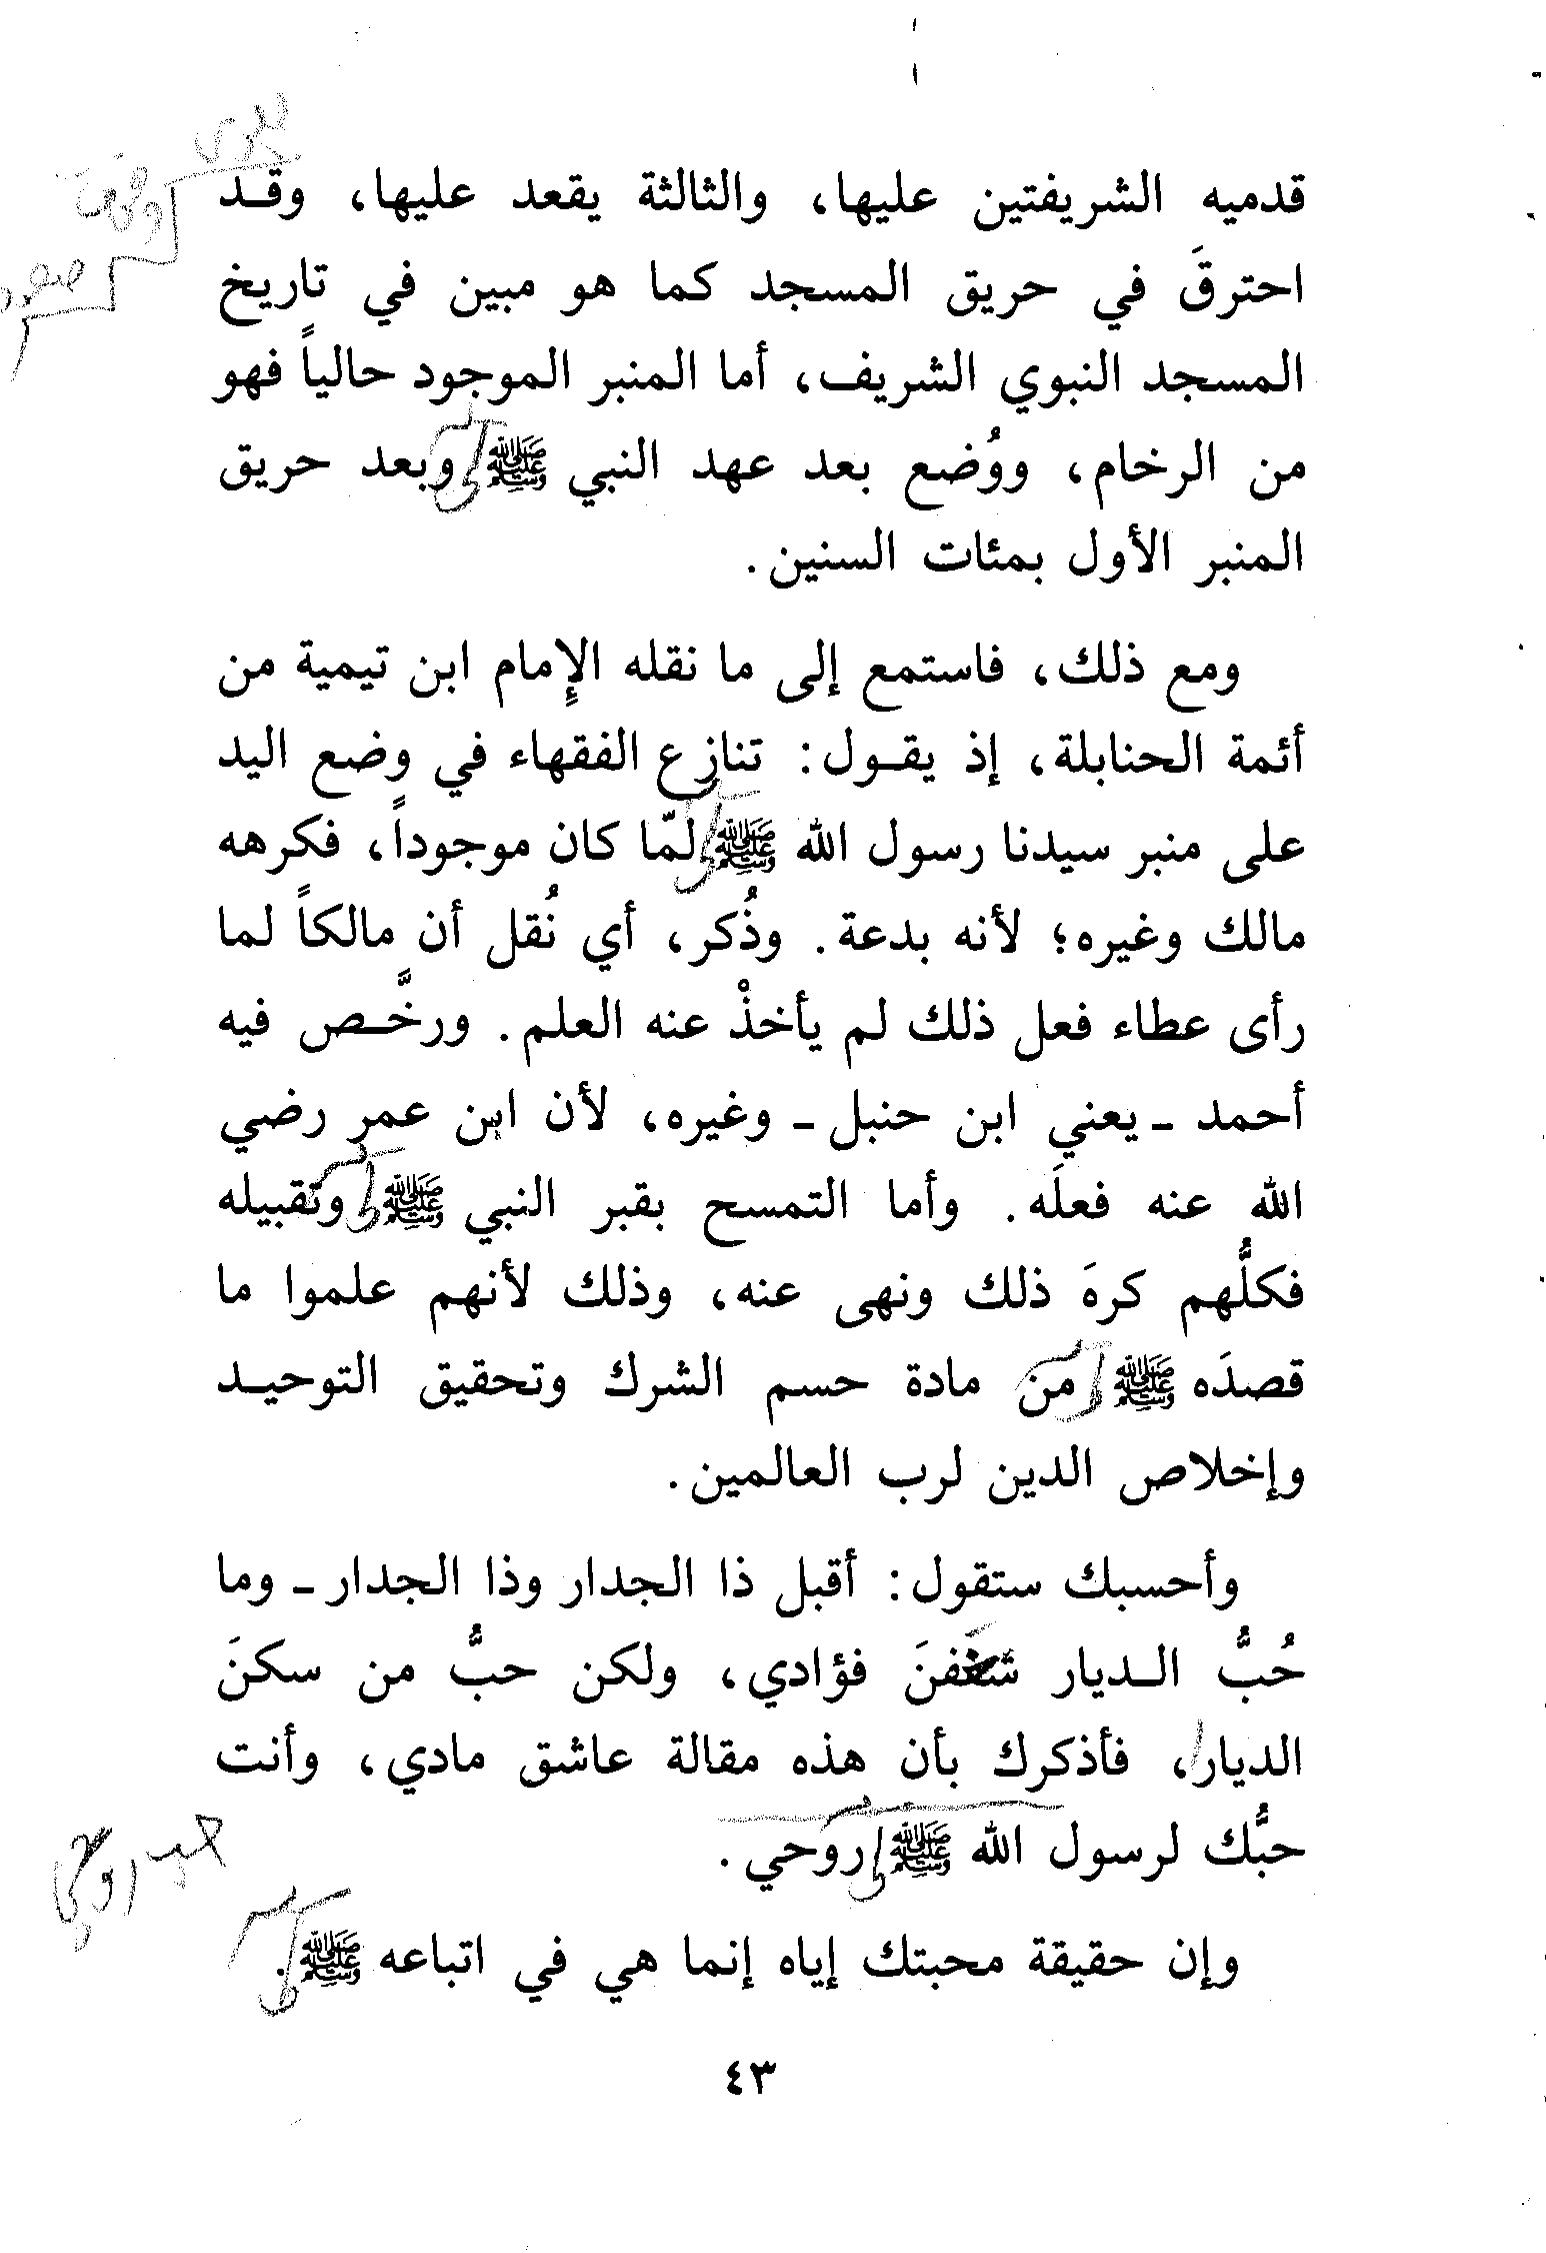 قدميه الشريفتين عليها، والثالثة يقعد عليها، وقـد
احترقَ في حريق المسجد كما هو مبين في تاريخ
المسجد النبوي الشريف، أما المنبر الموجود حالياً فهو
من الرخام، ووُضع بعد عهد النبي ﷺ وبعد حريق
المنبر الأول بمئات السنين.
ومع ذلك، فاستمع إلى ما نقله الإمام ابن تيمية من
أئمة الحنابلة، إذ يقـول: تنازع الفقهاء في وضع اليد
على منبر سيدنا رسول الله ﷺ لمّا كان موجوداً، فكرهه
مالك وغيره؛ لأنه بدعة. وذُكر، أي نُقل أن مالكاً لما
رأى عطاء فعل ذلك لم يأخذْ عنه العلم. ورخَّـص فيه
أحمد ـ يعني ابن حنبل ـ وغيره، لأن ابن عمر رضي
الله عنه فعلَه. وأما التمسح بقبر النبي ﷺ وتقبيله
فكلُّهم كرهَ ذلك ونهى عنه، وذلك لأنهم علموا ما
قصدَه ﷺ من مادة حسم الشرك وتحقيق التوحيـد
وإخلاص الدين لرب العالمين.
وأحسبك ستقول: أقبل ذا الجدار وذا الجدار ـ وما
حُبُّ الـديار شغفنَ فؤادي، ولكن حبُّ من سكنَ
الديار، فأذكرك بأن هذه مقالة عاشق مادي، وأنت
حبُّك لرسول الله ﷺ روحي.
حب روحي
وإن حقيقة محبتك إياه إنما هي في اتباعه ﷺ.
٤٣